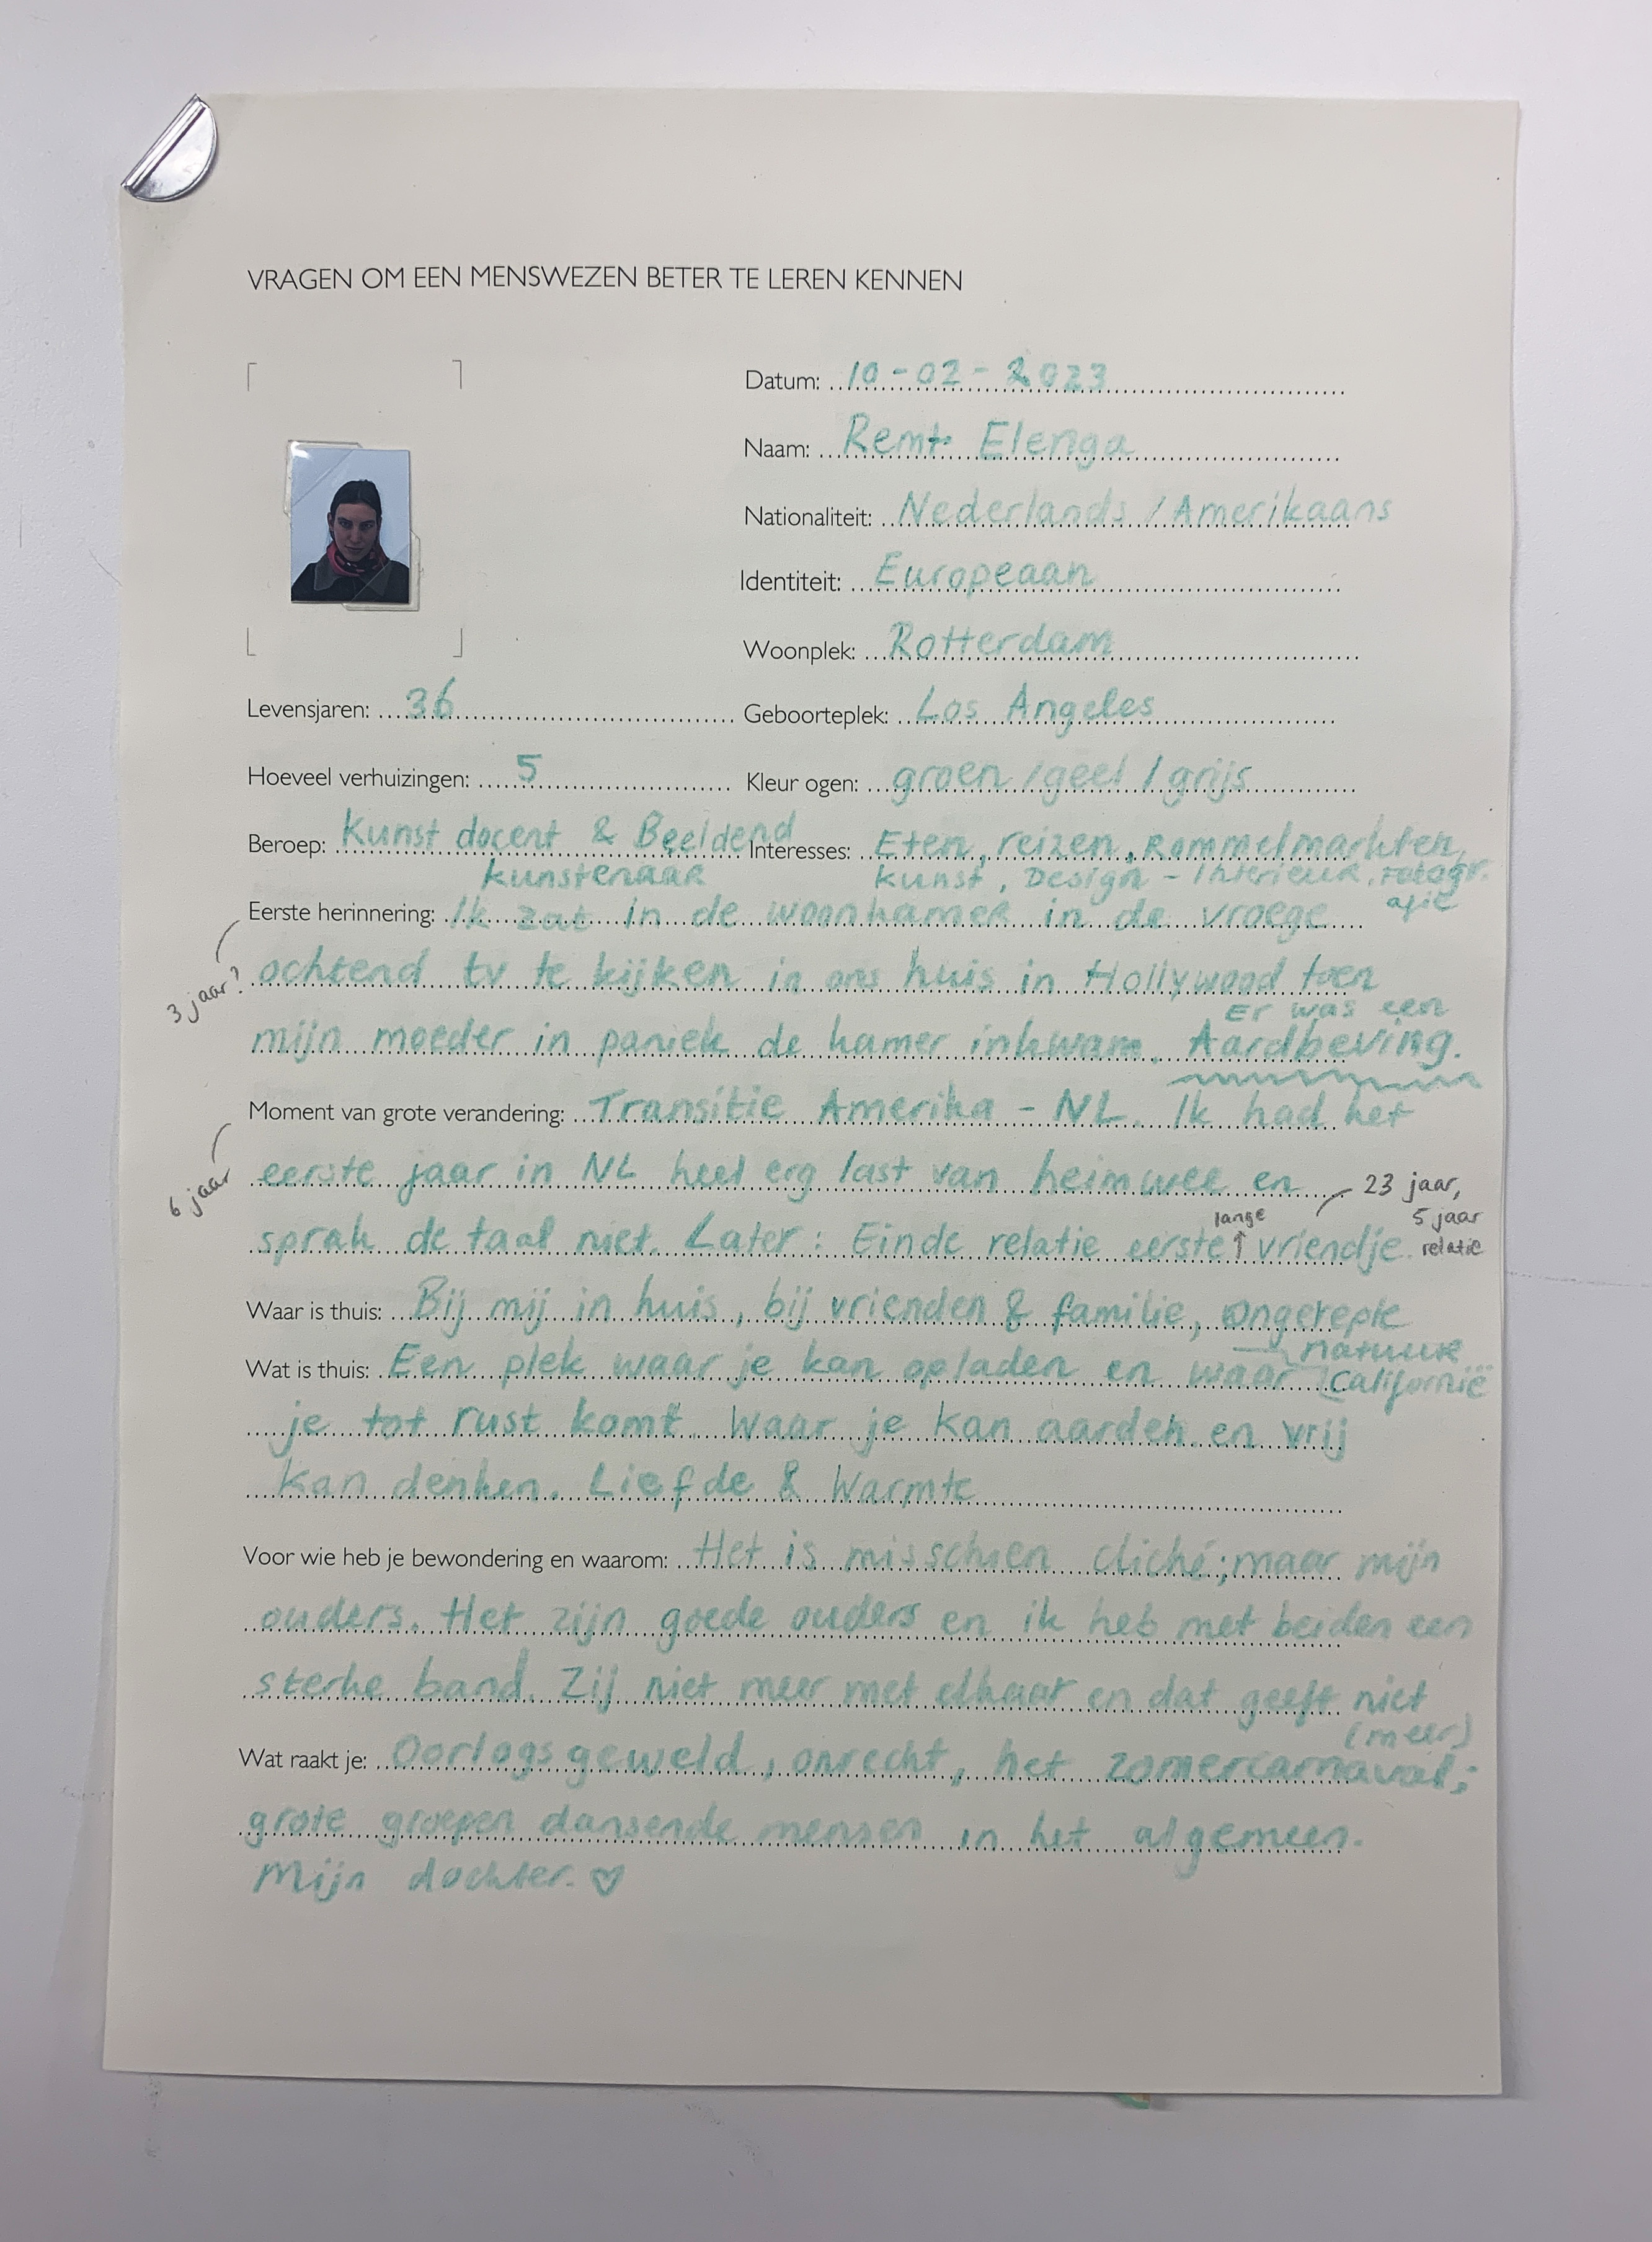 VRAGEN OM EEN MENSWEZEN BETER TE LEREN KENNEN
Datum: 10-02-2023
Naam: Remt Elenga
Nationaliteit: Nederlands / Amerikaans
Identiteit: Europeaan
Woonplek: Rotterdam
Levensjaren: 36
Geboorteplek: Los Angeles
Hoeveel verhuizingen: 5
Kleur ogen: groen / geel / grijs
Beroep: Kunst docent & Beeldend
kunstenaar
Interesses: Eten, reizen, Rommelmarkten,
kunst, Design - Interieur, Fotogr.
afie
Eerste herinnering: Ik zat in de woonkamer in de vroege
3 jaar?
ochtend tv te kijken in ons huis in Hollywood toen
Er was een
mijn moeder in paniek de kamer inkwam. Aardbeving.
Moment van grote verandering: Transitie Amerika - NL. Ik had het
6 jaar
eerste jaar in NL heel erg last van heimwee en
23 jaar,
5 jaar
relatie
lange
sprak de taal niet. Later: Einde relatie eerste ↑ vriendje
Waar is thuis: Bij mij in huis, bij vrienden & familie, ongerepte
natuur
Californië
Wat is thuis: Een plek waar je kan opladen en waar
je tot rust komt. Waar je kan aarden en vrij
kan denken. Liefde & Warmte
Voor wie heb je bewondering en waarom: Het is misschien cliché; maar mijn
ouders. Het zijn goede ouders en ik heb met beiden een
sterke band. Zij niet meer met elkaar en dat geeft niet
(meer)
Wat raakt je: Oorlogsgeweld, onrecht, het zomercarnaval;
grote groepen dansende mensen in het algemeen.
Mijn dochter. ♡